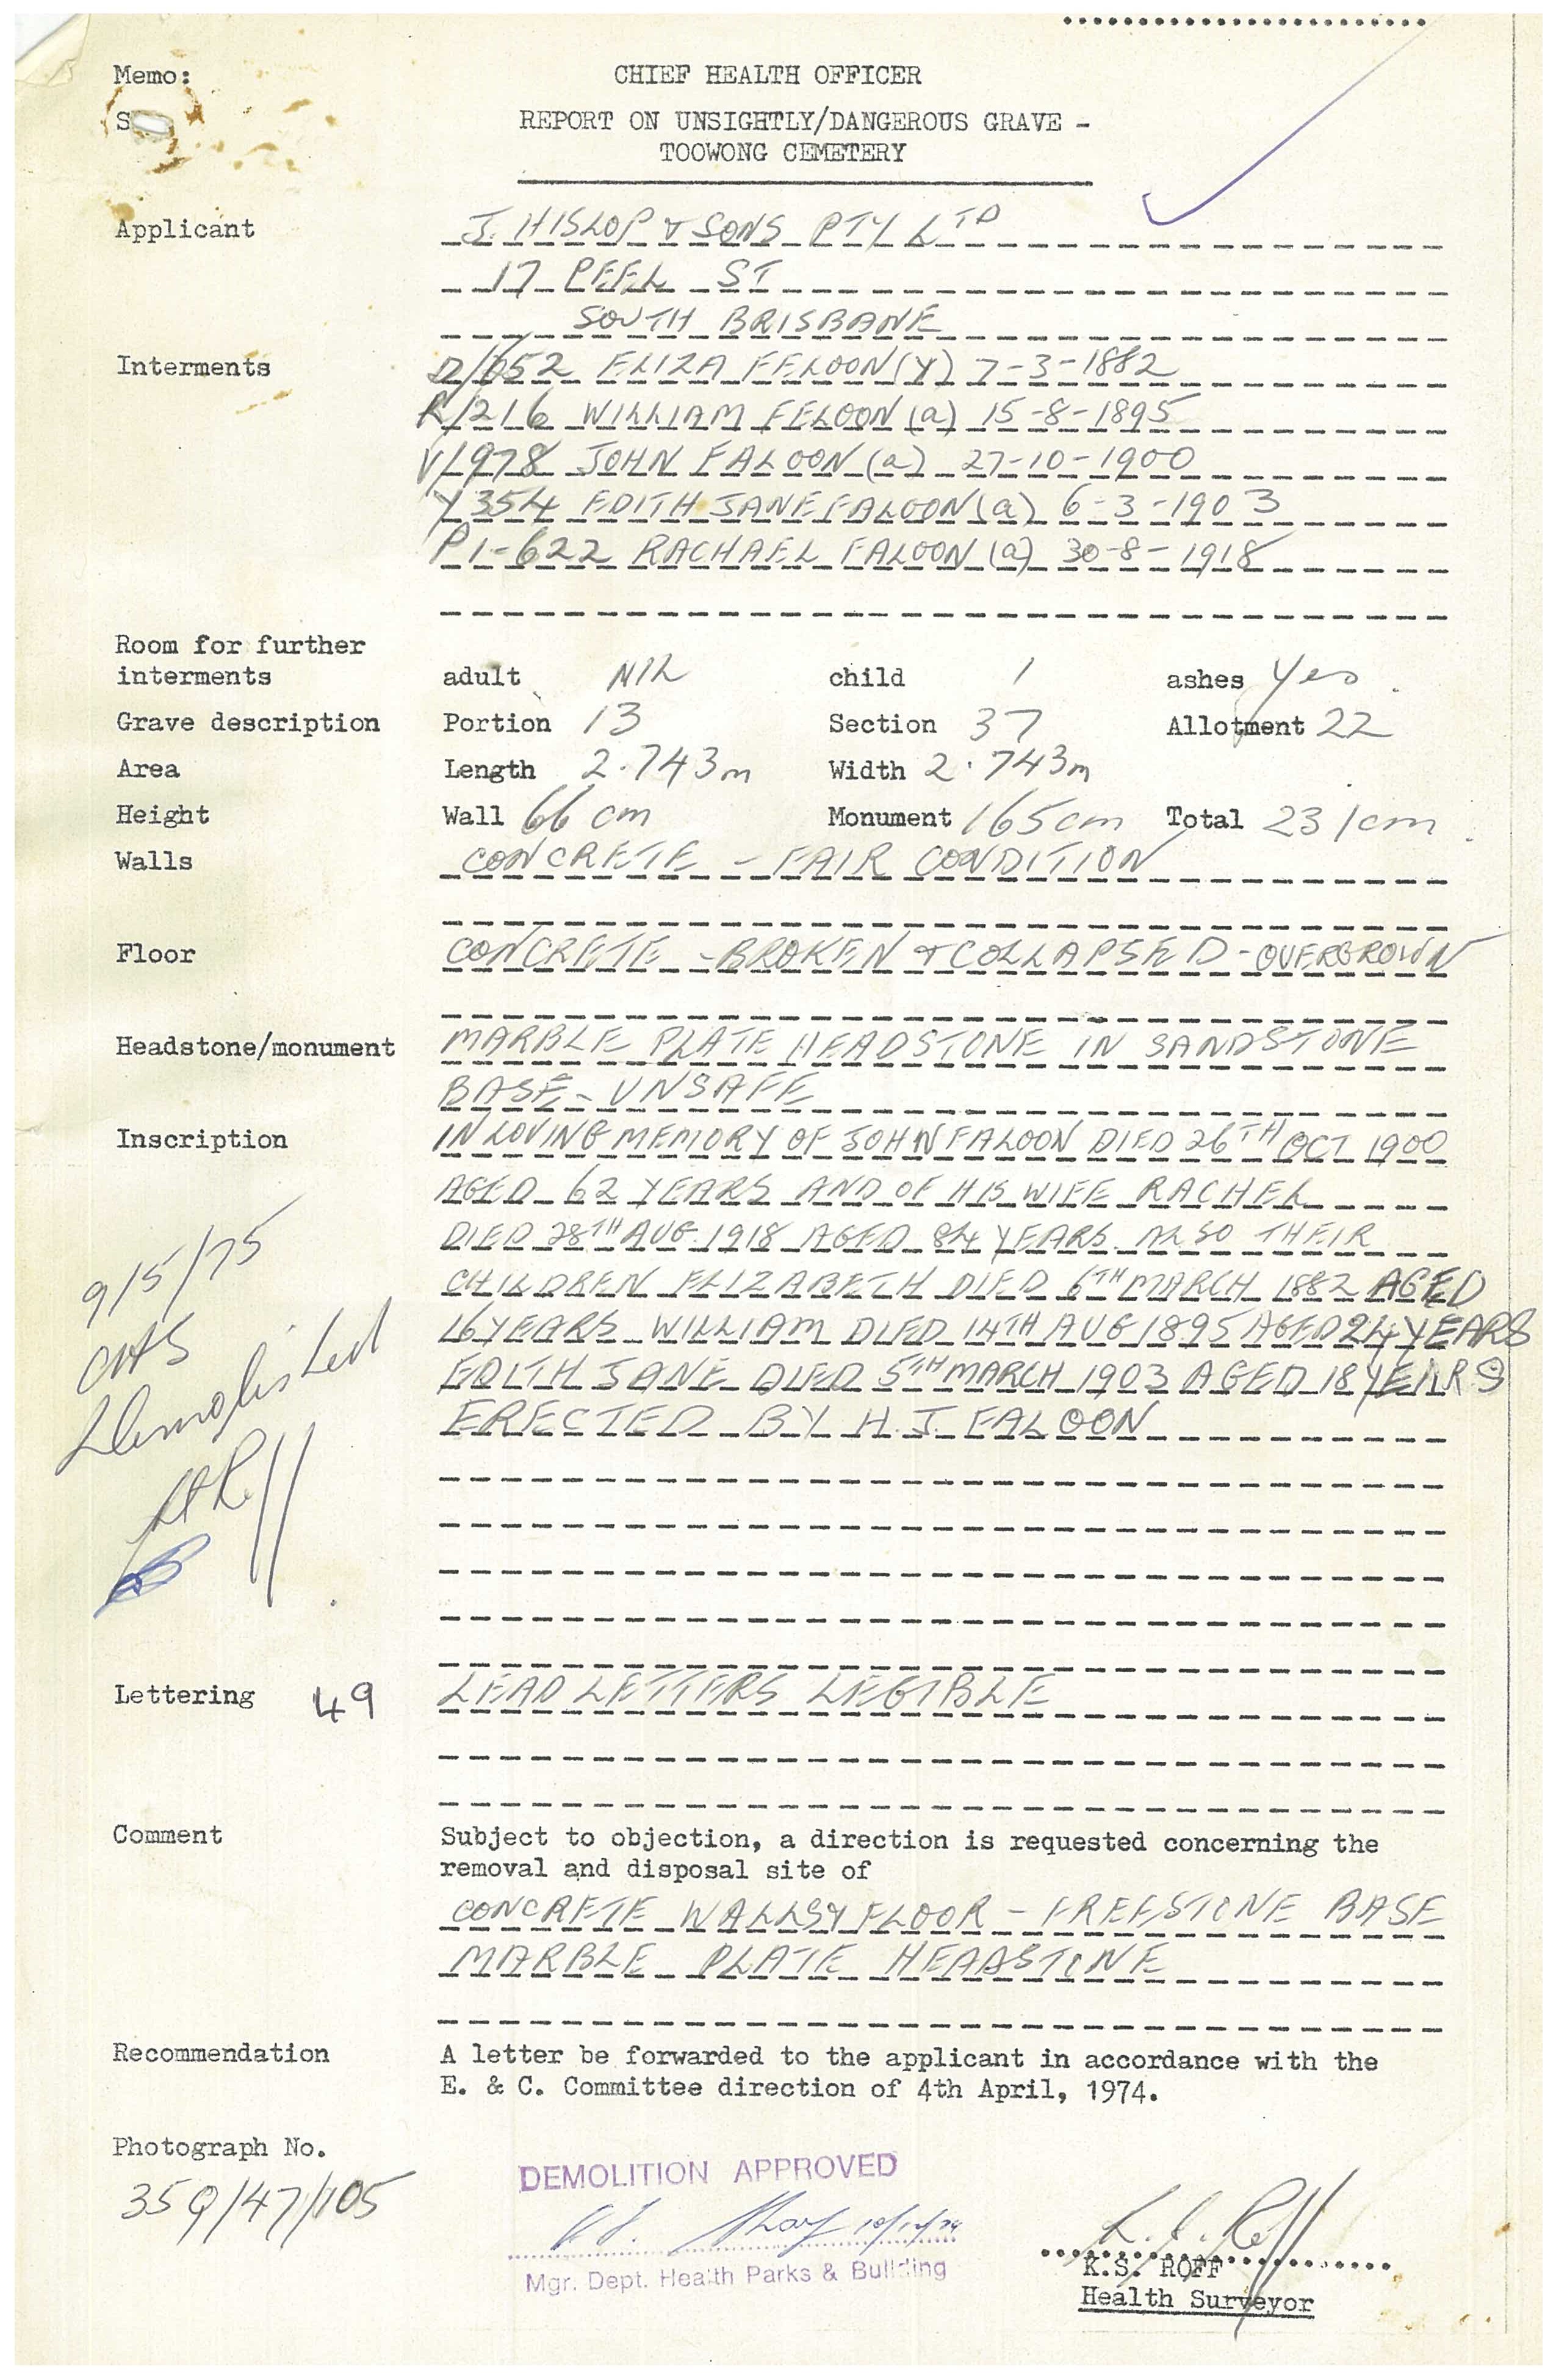 Memo:
CHIEF HEALTH OFFICER
REPORT ON UNSIGHTLY/DANGEROUS GRAVE -
TOOWONG CEMETERY
Applicant J. HISLOP & SONS PTY LTD
17 PEEL ST
SOUTH BRISBANE
Interments D/652 ELIZA FELOON (Y) 7-3-1882
R/216 WILLIAM FELOON (a) 15-8-1895
V/978 JOHN FALOON (a) 27-10-1900
Y354 EDITH JANE FALOON (a) 6-3-1903
P1-622 RACHAEL FALOON (a) 30-8-1918
Room for further
interments adult NIL child 1 ashes Yes.
Grave description Portion 13 Section 37 Allotment 22
Area Length 2.743m Width 2.743m
Height Wall 66 cm Monument 165cm Total 231cm.
Walls CONCRETE - FAIR CONDITION
Floor CONCRETE - BROKEN & COLLAPSED - OVERGROWN
Headstone/monument MARBLE PLATE HEADSTONE IN SANDSTONE
BASE - UNSAFE
Inscription IN LOVING MEMORY OF JOHN FALOON DIED 26TH OCT 1900
AGED 62 YEARS AND OF HIS WIFE RACHEL
DIED 28TH AUG. 1918 AGED 84 YEARS. ALSO THEIR
CHILDREN ELIZABETH DIED 6TH MARCH 1882 AGED
16 YEARS WILLIAM DIED 14TH AUG 1895 AGED 24 YEARS
EDITH JANE DIED 5TH MARCH 1903 AGED 18 YEARS
ERECTED BY H.J. FALOON
9/5/75
Demolished
Lettering 49 LEAD LETTERS LEGIBLE
Comment Subject to objection, a direction is requested concerning the
removal and disposal site of
CONCRETE WALLS & FLOOR - FREESTONE BASE
MARBLE PLATE HEADSTONE
Recommendation A letter be forwarded to the applicant in accordance with the
E. & C. Committee direction of 4th April, 1974.
Photograph No.
35Q/47/105
DEMOLITION APPROVED
10/12/74
Mgr. Dept. Health Parks & Building
K.S. ROFF
Health Surveyor